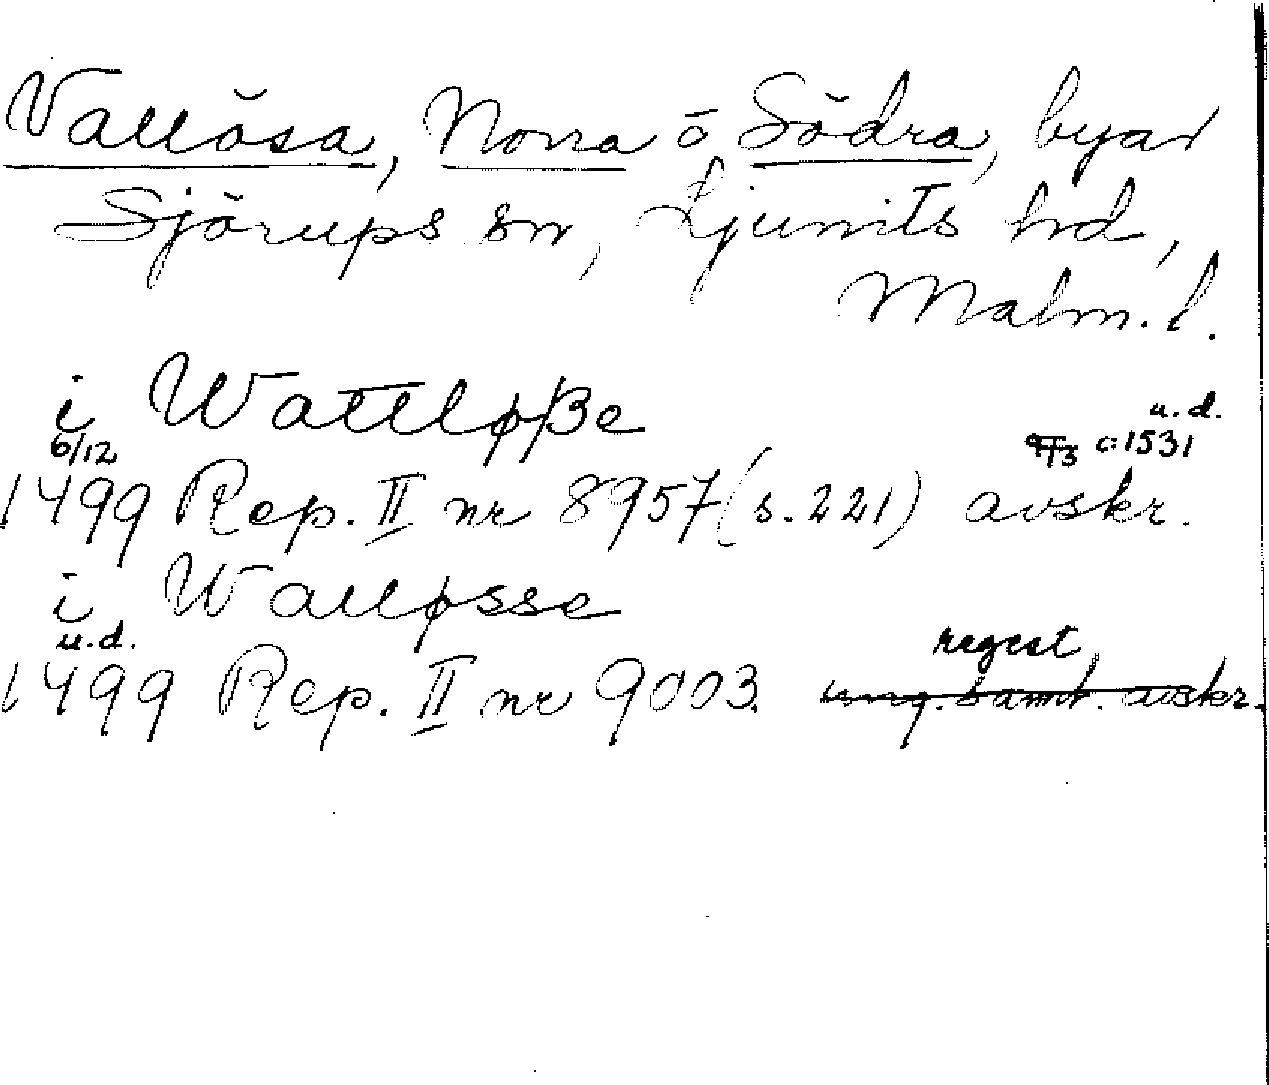 Vallösa, Norra o Södra, byar
Sjörups sn, Ljunits hd,
Malm. l.
i Wattløße
u. d.
6/12 c:1531
1499 Rep. II nr 8957 (s. 221) avskr.
i Walløsse
u. d. regest
1499 Rep. II nr 9003. ung. samt. avskr.